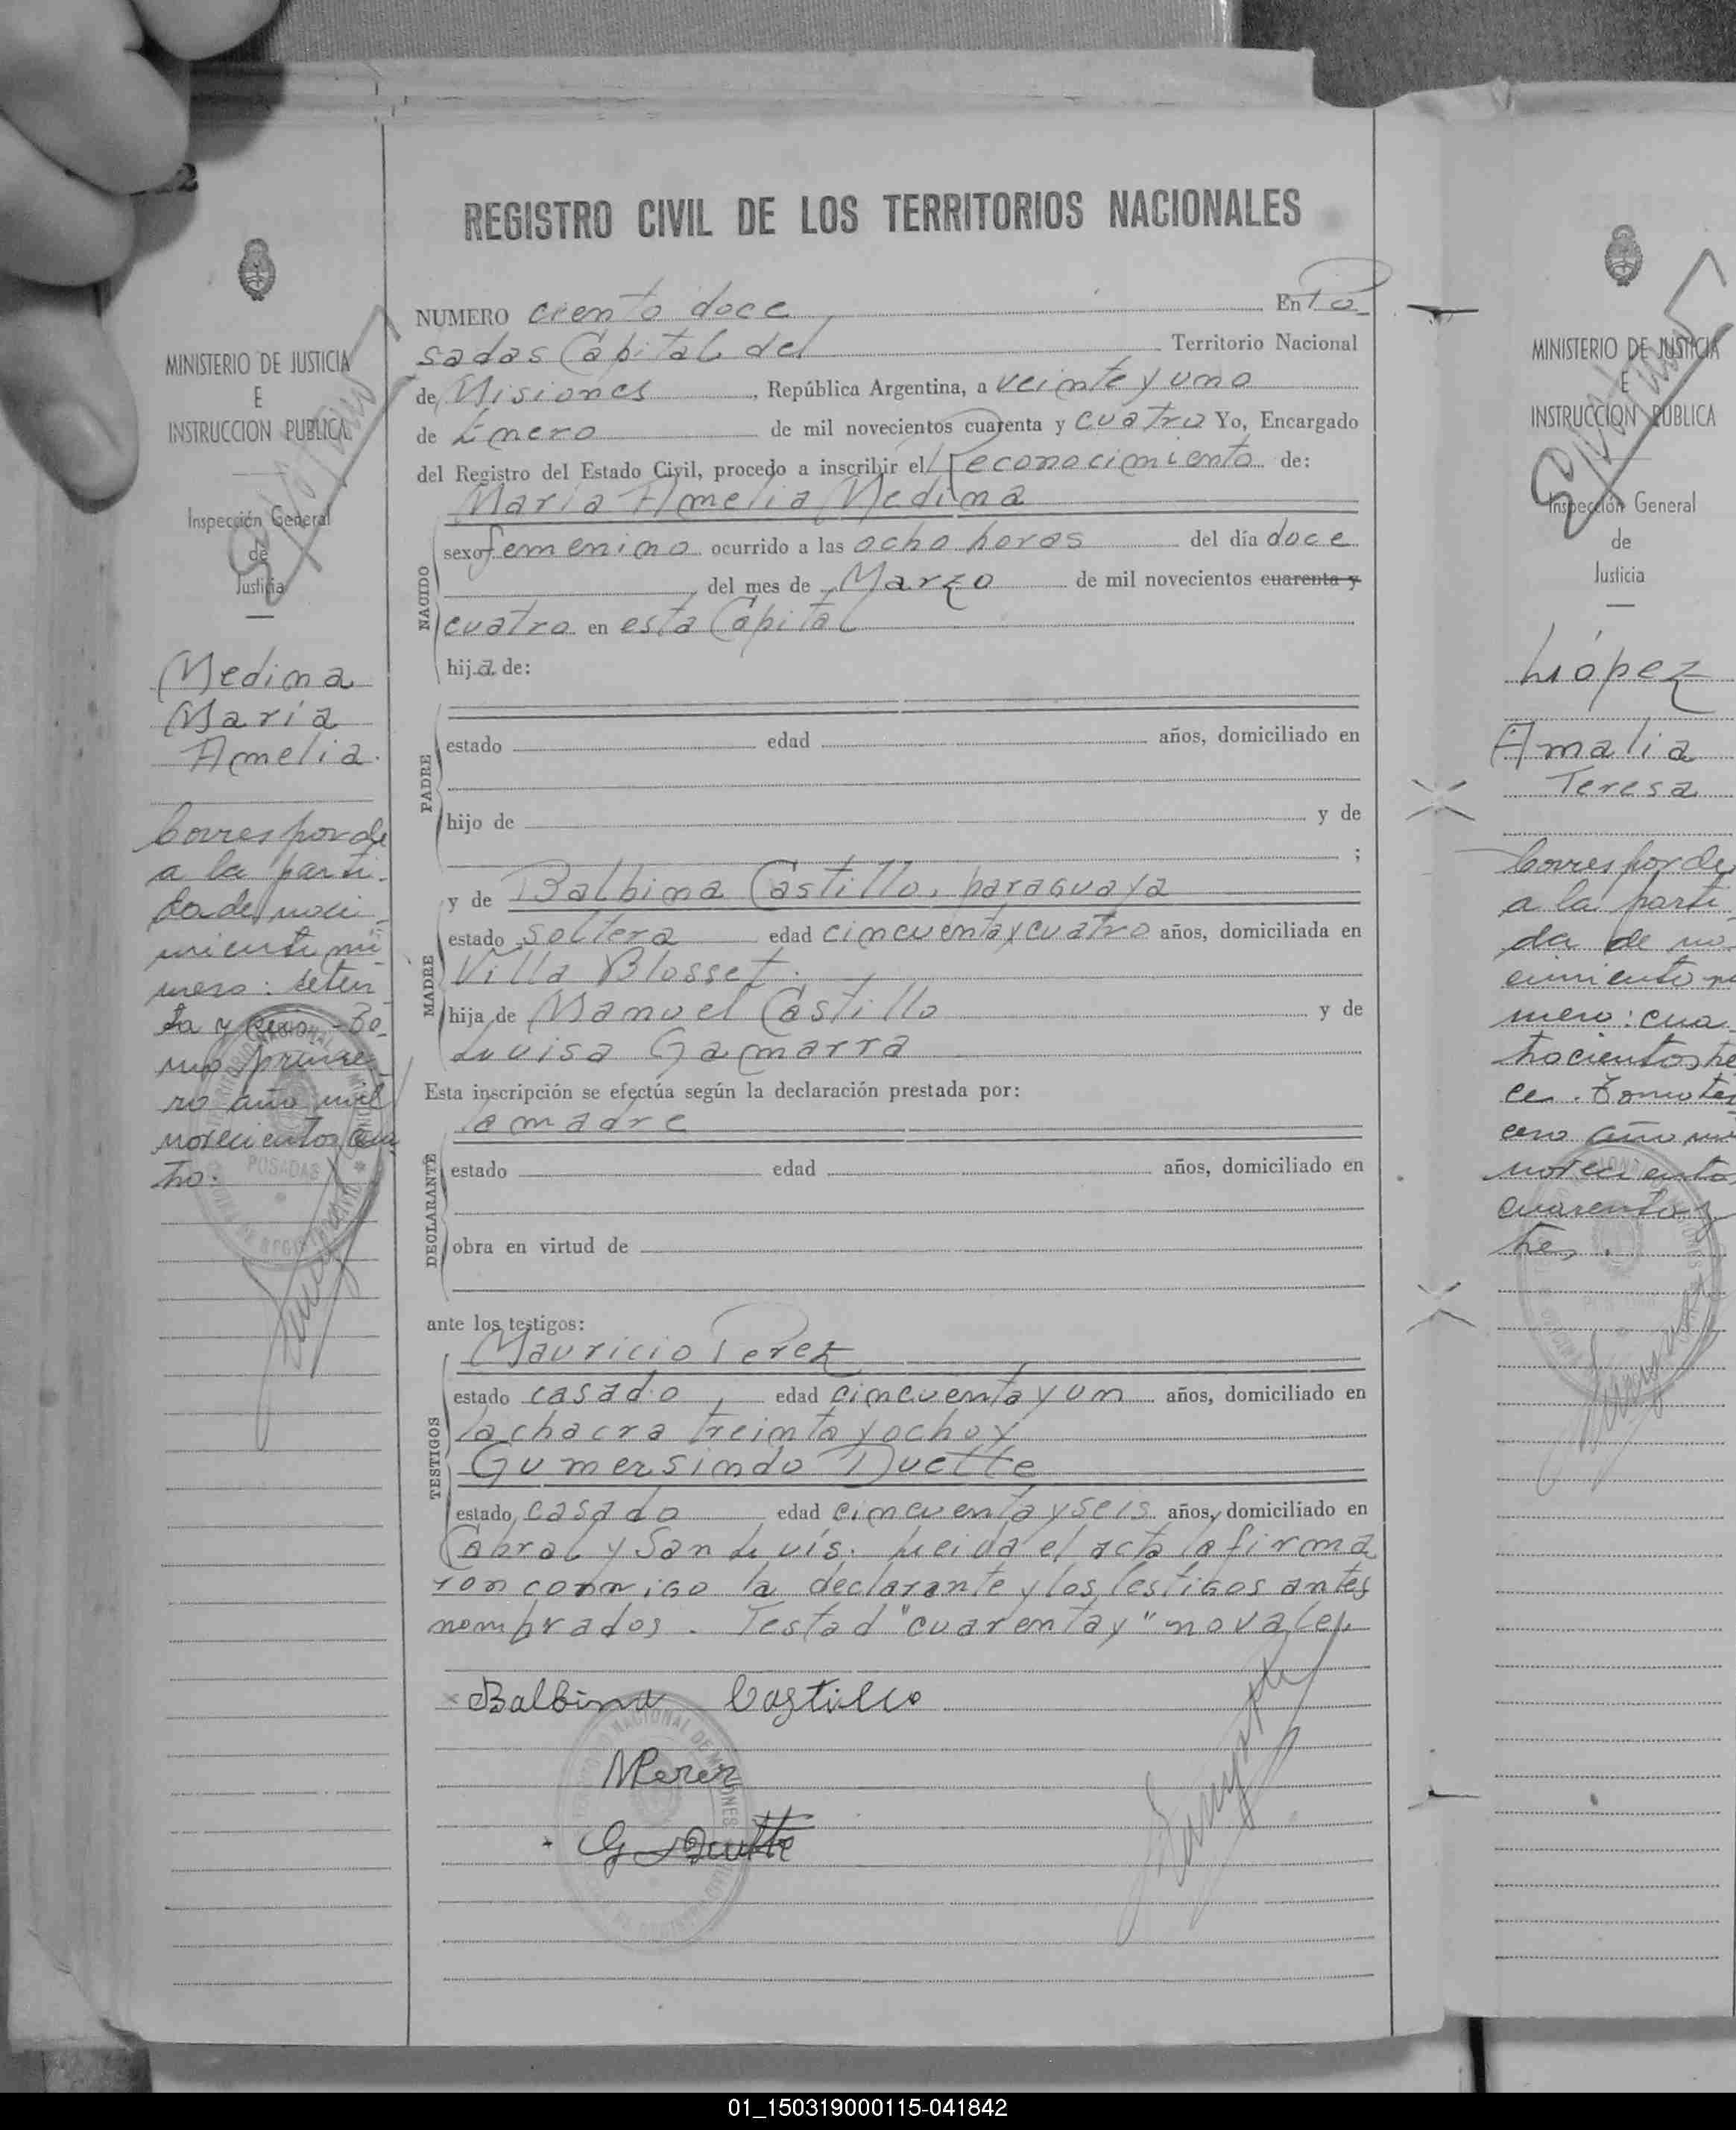 REGISTRO CIVIL DE LOS TERRITORIOS NACIONALES
MINISTERIO DE JUSTICIA
E
INSTRUCCION PUBLICA
Inspección General
de
Justicia
Medina
María
Amelia.
Corresponde
a la parti-
da de naci-
miento nú-
mero: seten
ta y seis - To-
mo prime-
ro año mil
novecientos cua
tro.
POSADAS
NUMERO ciento doce En Po
sadas Capital del Territorio Nacional
de Misiones, República Argentina, a veinte y uno
de Enero de mil novecientos cuarenta y cuatro Yo, Encargado
del Registro del Estado Civil, procedo a inscribir el Reconocimiento de:
María Amelia Medina
NACIDO
sexo femenino ocurrido a las ocho horas del día doce
del mes de Marzo de mil novecientos cuarenta y
cuatro en esta Capital
hija de:
PADRE
estado edad años, domiciliado en
hijo de y de
;
MADRE
y de Balbina Castillo, paraguaya
estado soltera edad cincuenta y cuatro años, domiciliada en
Villa Blosset.
hija de Manuel Castillo y de
Luisa Gamarra
Esta inscripción se efectúa según la declaración prestada por:
la madre
DECLARANTE
estado edad años, domiciliado en
obra en virtud de
ante los testigos:
TESTIGOS
Mauricio Perez
estado casado, edad cincuenta y un años, domiciliado en
la chacra treinta y ocho y
Gumersindo Duette
estado casado edad cincuenta y seis años, domiciliado en
Cabral y San Luís. Leida el acta la firma
ron conmigo la declarante y los testigos antes
nombrados. Testad "cuarenta y" no vale.
Balbina Castillo
MPerez
G Duette
MINISTERIO DE JUSTICIA
E
INSTRUCCION PUBLICA
Inspección General
de
Justicia
López
Amalia
Teresa
Corresponde
a la parti-
da de na-
cimiento nú
mero: cua
trocientos tre
ce. Tomo ter
cero año mi
novecientos
cuarenta y
tres.
01_150319000115-041842